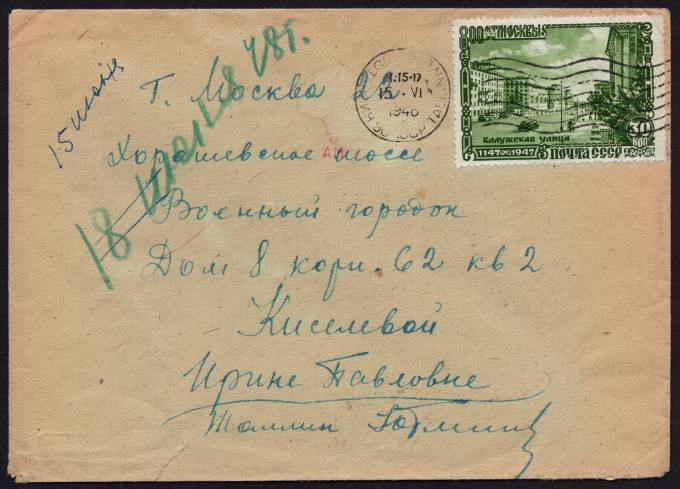 15 июня
18 июня 48г.
800 лет Москвы
Калужская улица
30 коп
1147 1947 почта СССР
15-17
15 VI
1948
г. Москва
Хорашевское шоссе
Военный городок
Дом 8 корп. 62 кв 2
Киселевой
Ирине Павловне
Таллин